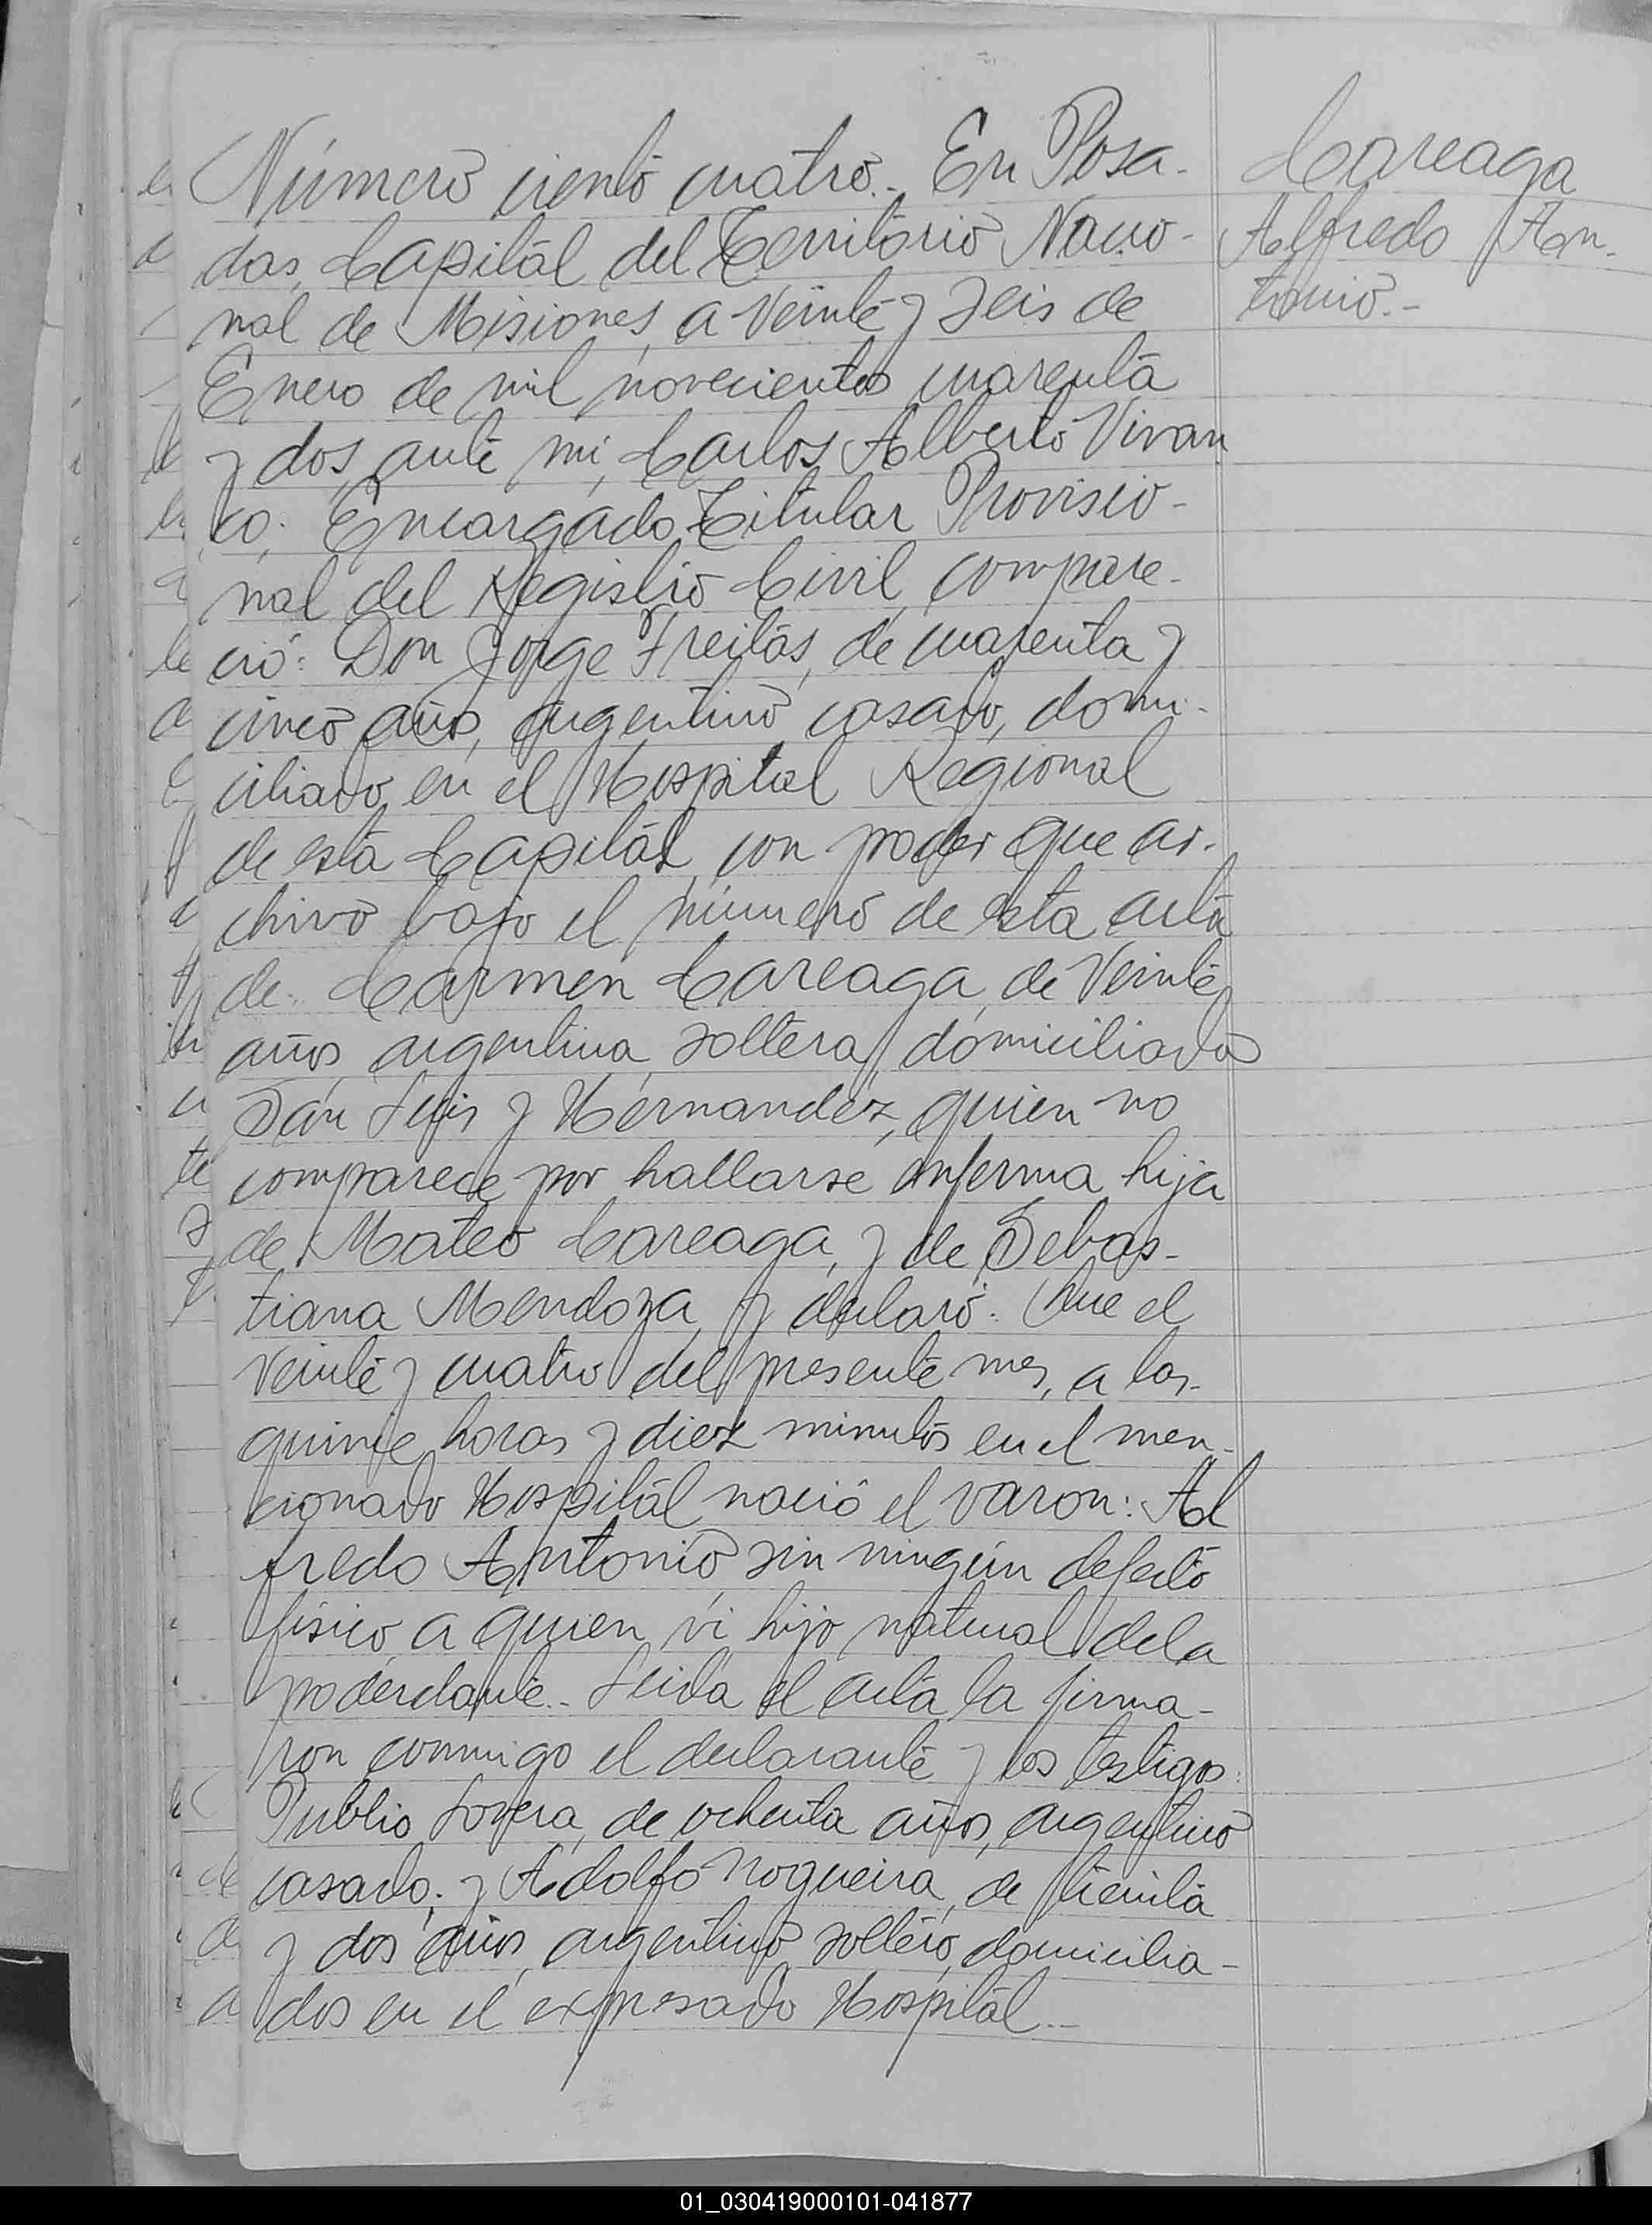 Número ciento cuatro.- En Posa-
das, Capitál del Territorio Nacio-
nal de Misiones, a Veinte y seis de
Enero de mil novecientos cuarenta
y dos, ante mi, Carlos Alberto Vivan
co, Encargado Titular Provisio-
nal del Registro Civil, compare-
ció: Don Jorge Freitas, de cuarenta y
cinco años, argentino casado, domi-
ciliado en el Hospital Regional
de esta Capitál, con poder que ar-
chivo bajo el número de esta acta
de Carmen Careaga, de Veinte
años, argentina, soltera, domiciliada
San Luis y Hernandez, quien no
comparece por hallarse enferma hija
de Mateo Careaga, y de Sebas-
tiana Mendoza, y declaró: Que el
Veinte y cuatro del presente mes, a las
quince horas y diez minutos en el men-
cionado Hospitál nació el varon: Al
fredo Antonio sin ningún defecto
físico, a quien vi hijo natural de la
poderdante.- Leida el acta la firma-
ron conmigo el declarante y los testigos:
Publio Lovera, de ochenta años, argentino
casado; y Adolfo Nogueira, de treinta
y dos años, argentino soltero, domicilia-
dos en el expresado Hospitál.-
Careaga
Alfredo An-
tonio.-
01_030419000101-041877